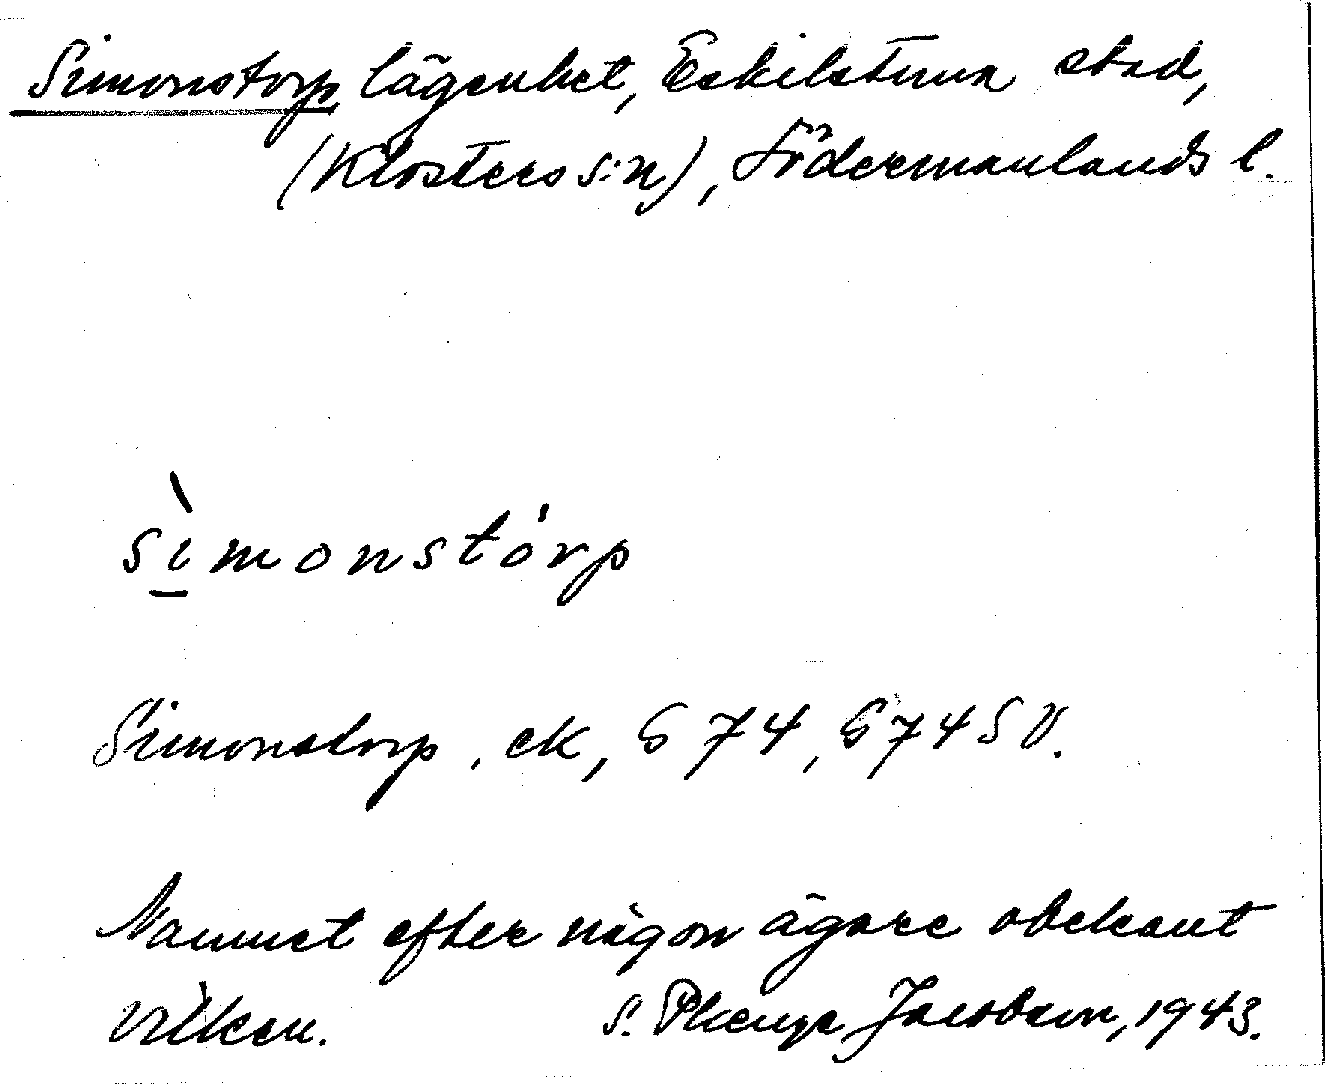 Simonstorp lägenhet, Eskilstuna stad,
(Klosters s:n), Södermanlands l.
sìmonstórp
Simonstorp, ek, G 74, G 74 SV.
Namnet efter någon ägare obekant
vilken. S. Plenge Jacobson, 1943.